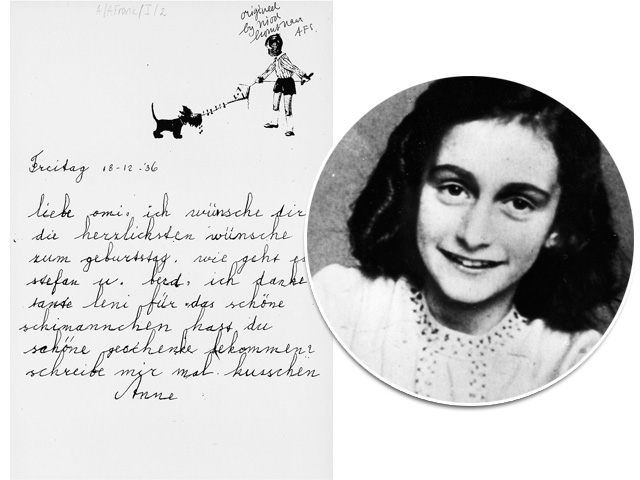 A/AFrank/I/2
origineel
by niod
AFS.
Freitag 18-12-'36
liebe omi, ich wünsche dir
die herzlichsten wünsche
zum geburtstag. wie geht es
stefan u. berd, ich danke
tante leni für das schöne
schimännchen hast du
schöne geschenke bekommen?
schreibe mir mal. kusschen
Anne